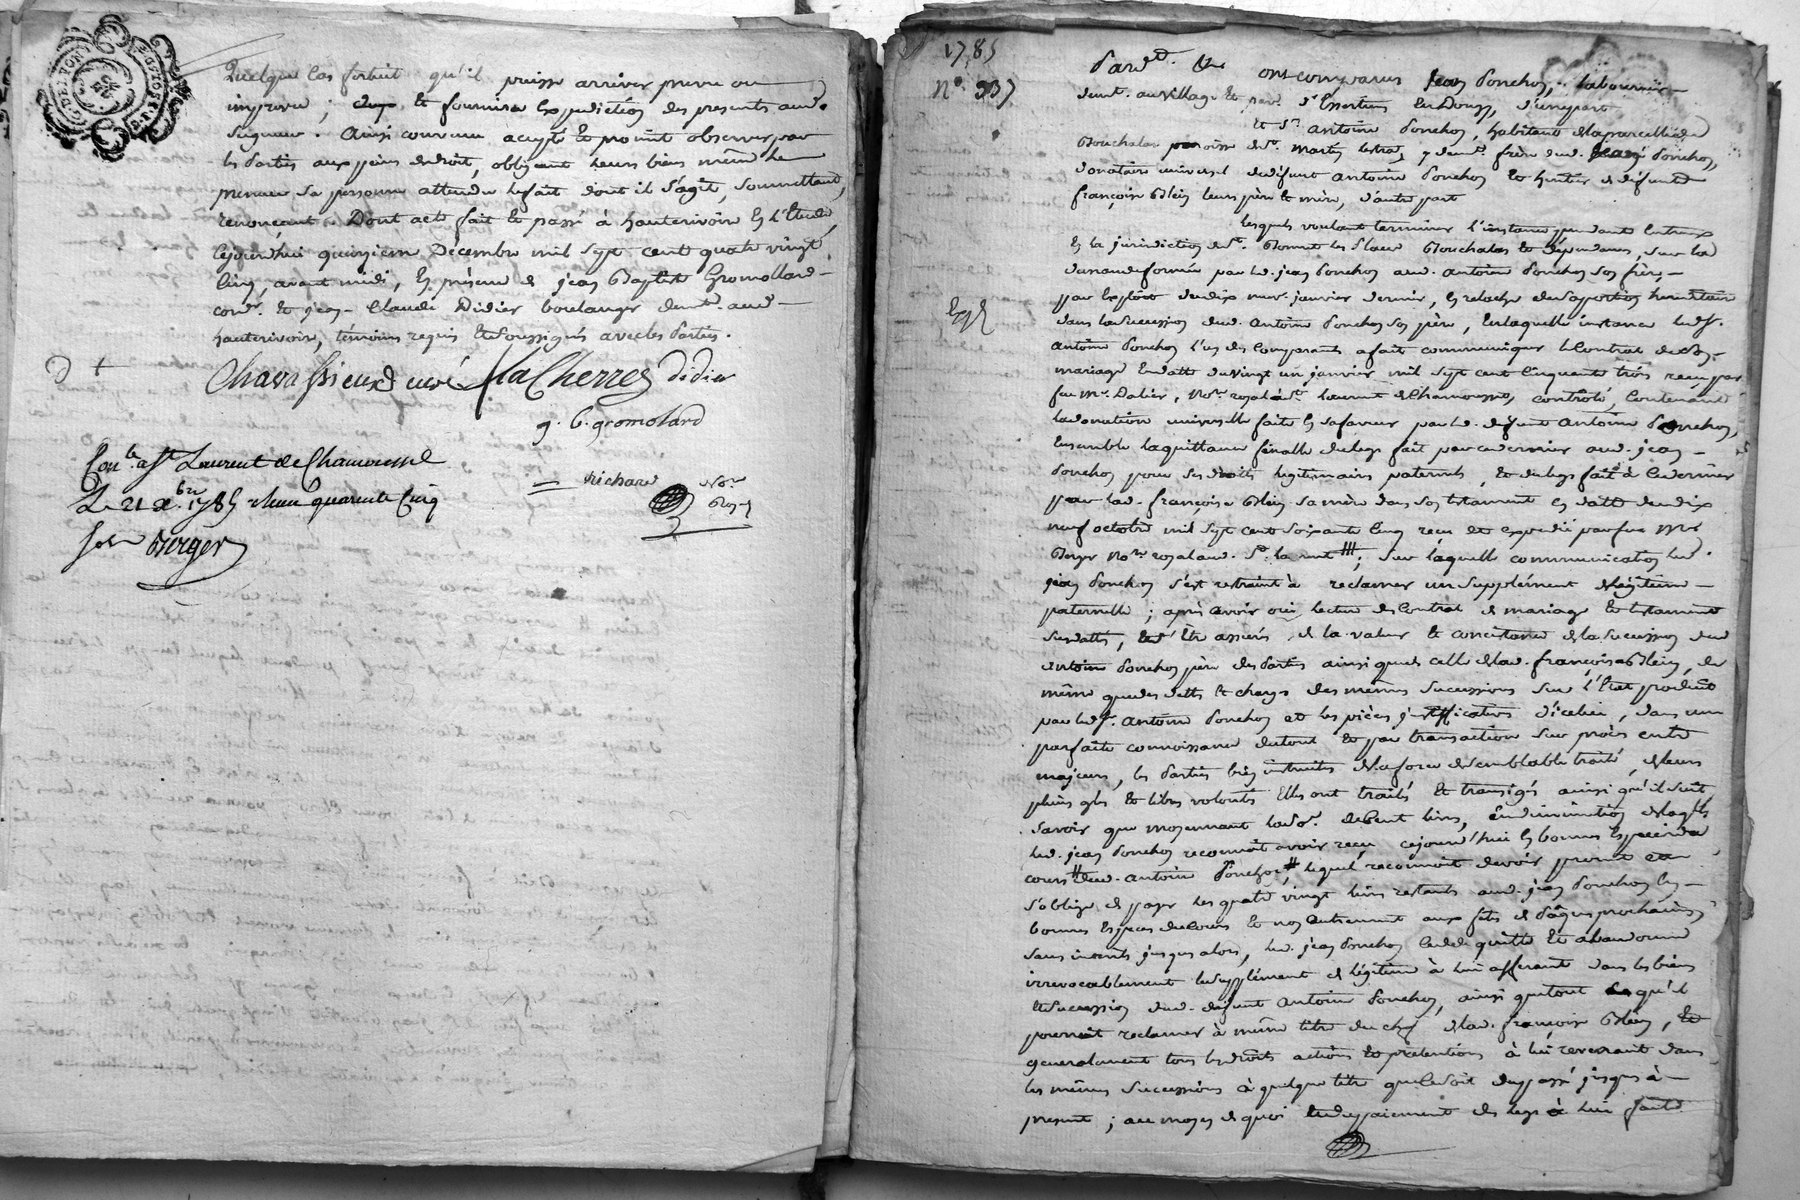 Quelque cas fortuit qu'il puisse arriver prevu ou
imprevu ; et fournira expediction des presents aud.
Seigneur. Ainsi convenu accepté et promit observer par
les parties aux peines de droit, obligeant leurs biens même le
preneur sa personne attendu le fait dont il s'agit, soumettant,
renonçant. Dont acte fait et passé à hauterivoire en l'Etude
cejourd'hui quinzieme Décembre mil sept cent quatre vingt
cinq, avant midi, en présence de jean Baptiste Gromollard
cord.r et jean Claude Didier boulanger demt. aud.
hauterivoire, témoins requis et soussignés avec les parties.
Chavassieux curé LaCherre Didier
j. b. gromolard
Con.lé a St Laurent de Chamousset
Le 21 Xbre 1785 Reçu quarente cinq
sols Berger
Richard No.re
Roy.l
1785
No 937
Expé
Pard.t &c ont comparus Jean Ponchon, laboureur
demt. au village et par. d'Essertines en Donzy, d'une part
et Sr. antoine Ponchon, habitant de la parcelle de
Bouchalas paroisse de St. Martin lestrat, y demt. frère dud. Jean Ponchon,
donataire universel de défunt antoine Ponchon et heritier de défunte
françoise Blein leurs père et mère, d'autre part
lesquels voulant terminer l'instance pendante entr'eux
en la juridiction de St. Bonnet les Places Bouchalas et dépendances, sur la
demande formée par led. jean Ponchon aud. antoine Ponchon son frère
par Exploit du dix neuf janvier dernier, en relache de sa portion hereditaire
dans la succession dud. antoine Ponchon son père, en laquelle instance led. Sr.
antoine Ponchon l'un des comparants a fait communiquer le Contrat de son
mariage en datte du vingt un janvier mil sept cent cinquante trois reçu par
feu Mr. Dalier, No.re royal à St. laurent de Chamousset, contrôlé, contenant
la donation universelle faite en sa faveur par led. défunt antoine Ponchon,
ensemble la quittance finalle du legs fait par ce dernier aud. jean
Ponchon pour ses droits legitimaires paternels, et du legs fait à ce dernier
par lad. françoise Blein sa mère dans son testament en datte du dix
neuf octobre mil sept cent soixante cinq reçu et expedié par feu Me
No.re royal aud. St. laurent ; sur laquelle communication led.
jean Ponchon s'est restraint à reclamer un supplément de légitime
paternelle ; après avoir oui lecture des contrat de mariage et testament
susdattés, et s'être assurés de la valeur et consistance de la succession dud.
antoine Ponchon père des parties ainsi que de celle de lad. françoise Blein, de
même que des dettes et charges des mêmes successions sur l'Etat produit
par led. Sr. antoine Ponchon et les pièces justificatives d'icelui, dans une
parfaite connoissance du tout et par transaction sur procès entre
majeurs, les parties bien instruites de la force de semblable traité, de leurs
pleins grés et libres volontés Elles ont traités et transigés ainsi qu'il suit
Savoir que moyennant la so.e de cent livres, en diminution de laquelle
led. jean Ponchon reconnoit avoir reçu cejourd'hui en bonnes Especes de
cours dud. antoine Ponchon, lequel reconnoit devoir promet et
s'oblige de payer les quatre vingt livres restants aud. jean Ponchon en
bonnes Espèces de cours et non autrement aux fêtes de Pâques prochaines
sans interets jusques alors, led. jean Ponchon cede quitte et abandonne
irrevocablement le supplément de légitime à lui afferant dans les biens
et succession dud. défunt antoine Ponchon, ainsi que tout ce qu'il
pourroit reclamer à même titre du chef de lad. françoise Blein, et
generalement tous les droits actions et prétentions à lui revenant dans
les mêmes successions à quelque titre que ce soit du passé jusques à
present ; au moyen de quoi et du payement des legs à lui faits